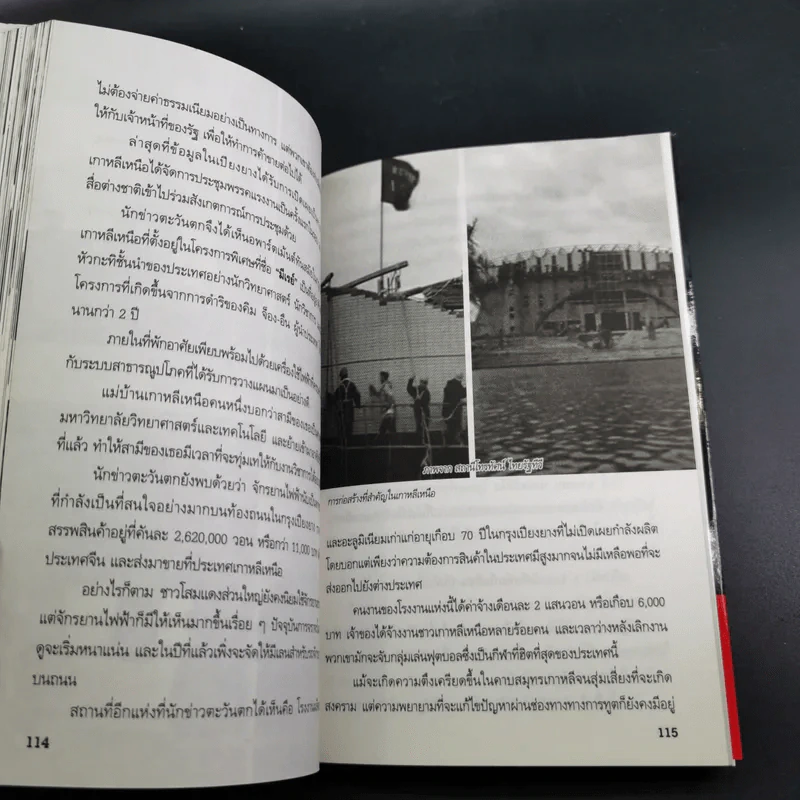 ไม่ต้องจ่ายค่าธรรมเนียมอย่างเป็นทางการ
ให้กับเจ้าหน้าที่ของรัฐ เพื่อให้ทำการค้าขายต่อไปได้
ล่าสุดที่ข้อมูลในเปียงยางได้รับการ
เกาหลีเหนือได้จัดการประชุมพรรคแรงงานเป็นครั้งแรก
สื่อต่างชาติเข้าไปร่วมสังเกตการณ์การประชุมด้วย
นักข่าวตะวันตกจึงได้เห็นอพาร์ตเม้นต์
เกาหลีเหนือที่ตั้งอยู่ในโครงการพิเศษที่ชื่อ "มีแร"
หัวกะทิชั้นนำของประเทศอย่างนักวิทยาศาสตร์
โครงการที่เกิดขึ้นจากการดำริของคิม จ็อง-อึน
นานกว่า 2 ปี
ภายในที่พักอาศัยเพียบพร้อมไปด้วยเครื่องใช้
กับระบบสาธารณูปโภคที่ได้รับการวางแผนมาเป็นอย่างดี
แม่บ้านเกาหลีเหนือคนหนึ่งบอกว่าสามีของเธอ
มหาวิทยาลัยวิทยาศาสตร์และเทคโนโลยี และย้ายเข้า
ที่แล้ว ทำให้สามีของเธอมีเวลาที่จะทุ่มเทให้กับงาน
นักข่าวตะวันตกยังพบด้วยว่า จักรยานไฟฟ้า
ที่กำลังเป็นที่สนใจอย่างมากบนท้องถนนในกรุงเปียงยาง
สรรพสินค้าอยู่ที่คันละ 2,620,000 วอน หรือกว่า 11,000 บาท
ประเทศจีน และส่งมาขายที่ประเทศเกาหลีเหนือ
อย่างไรก็ตาม ชาวโสมแดงส่วนใหญ่ยังคงนิยมใช้
แต่จักรยานไฟฟ้าก็มีให้เห็นมากขึ้นเรื่อย ๆ ปัจจุบันการจราจร
ดูจะเริ่มหนาแน่น และในปีที่แล้วเพิ่งจะจัดให้มีเลนสำหรับ
บนถนน
สถานที่อีกแห่งที่นักข่าวตะวันตกได้เห็นคือ
114
ภาพจาก สถานีโทรทัศน์ ไทยรัฐทีวี
การก่อสร้างที่สำคัญในเกาหลีเหนือ
และอะลูมิเนียมเก่าแก่อายุเกือบ 70 ปีในกรุงเปียงยางที่ไม่เปิดเผยกำลังผลิต
โดยบอกแต่เพียงว่าความต้องการสินค้าในประเทศมีสูงมากจนไม่มีเหลือพอที่จะ
ส่งออกไปยังต่างประเทศ
คนงานของโรงงานแห่งนี้ได้ค่าจ้างเดือนละ 2 แสนวอน หรือเกือบ 6,000
บาท เจ้าของได้จ้างงานชาวเกาหลีเหนือหลายร้อยคน และเวลาว่างหลังเลิกงาน
พวกเขามักจะจับกลุ่มเล่นฟุตบอลซึ่งเป็นกีฬาที่ฮิตที่สุดของประเทศนี้
แม้จะเกิดความตึงเครียดขึ้นในคาบสมุทรเกาหลีจนสุ่มเสี่ยงที่จะเกิด
สงคราม แต่ความพยายามที่จะแก้ไขปัญหาผ่านช่องทางทางการทูตก็ยังคงมีอยู่
115